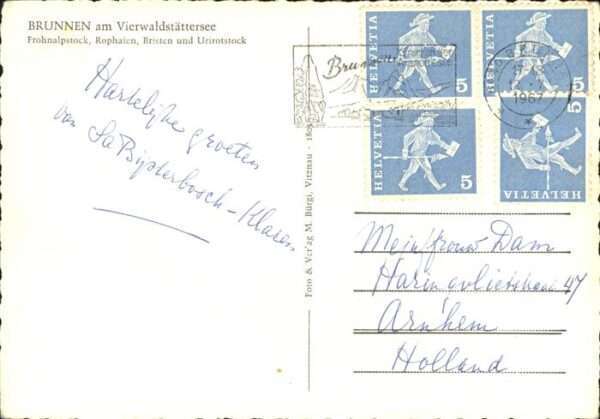 BRUNNEN am Vierwaldstättersee
Frohnalpstock, Rophaien, Bristen und Urirotstock
Hartelijke groeten
van
Bijsterbosch-Klasen
Foto & Verlag M. Bürgi, Vitznau
HELVETIA 5
HELVETIA 5
HELVETIA 5
HELVETIA 5
Brunnen
1967
Mejuffrouw Dam
Haringvlietstraat 47
Arnhem
Holland